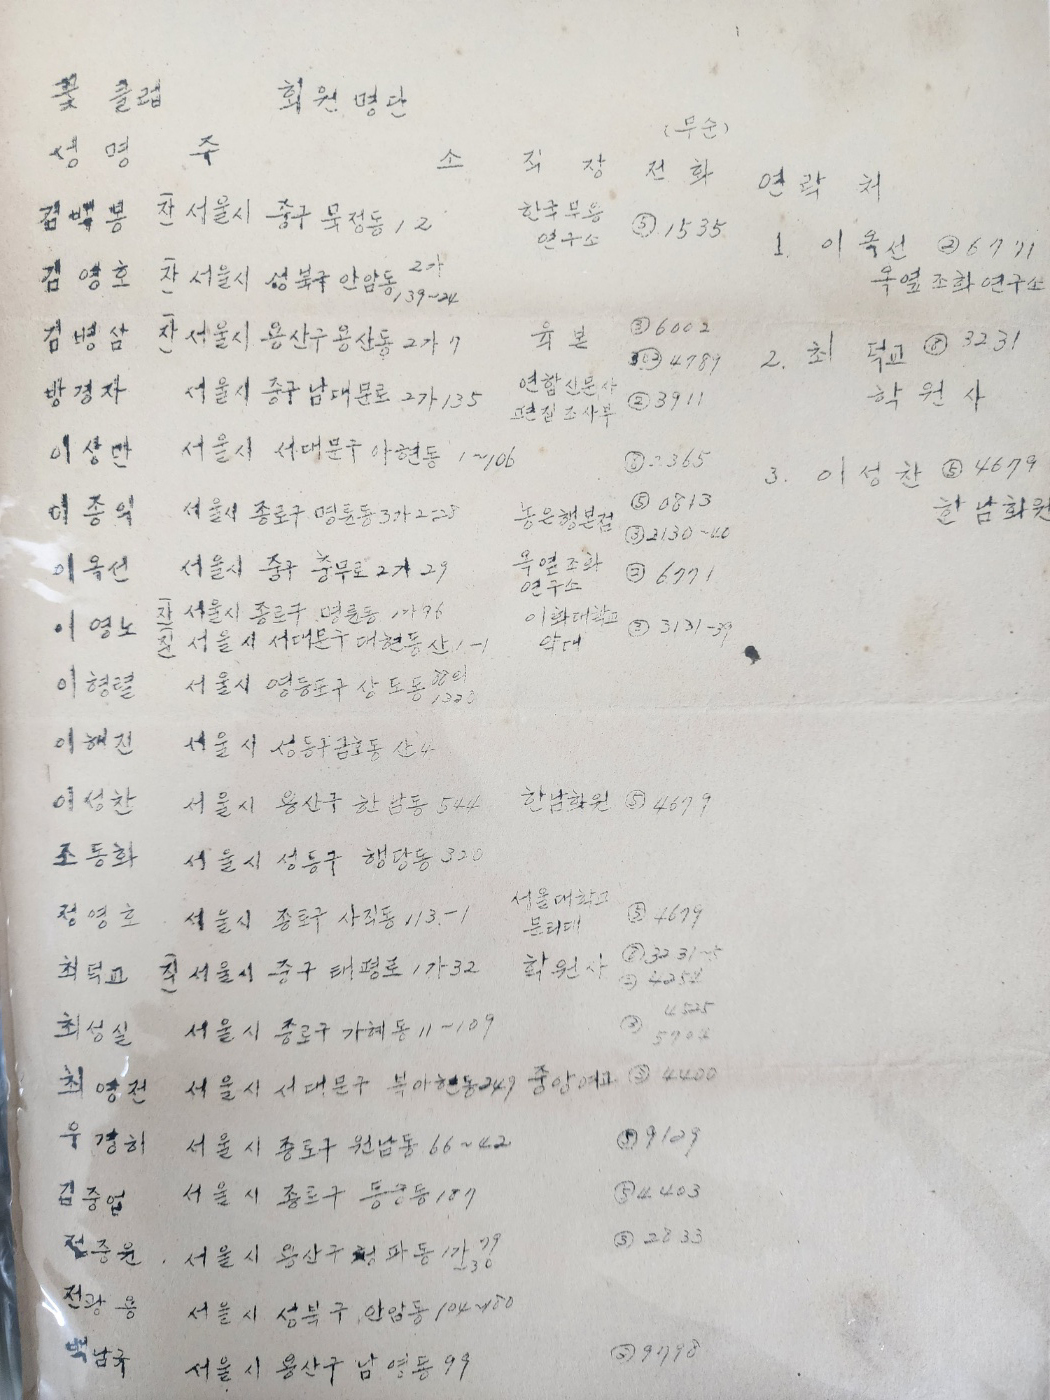 꽃 클럽 회원 명단
(무순)
성 명 주 소 직 장 전 화
김백봉 자 서울시 중구 묵정동 12 한국무용 연구소 ⑤1535
김영호 자 서울시 성북구 안암동 2가 139-24
김병삼 자 서울시 용산구 용산동 2가 7 육본 ③6002
4789
방경자 서울시 중구 남대문로 2가 135 연합신문사 편집조사부 ②3911
이상만 서울시 서대문구 아현동 1~106 2365
이종익 서울시 종로구 명륜동 3가 2-28 농은행본점 ⑤0813
③2130~40
이옥선 서울시 중구 충무로 2가 29 옥엽조화 연구소 ②6771
이영노 자 서울시 종로구 명륜동 1가 96 이화대학교 약대 3131-39
직 서울시 서대문구 대현동 산 1-1
이형렬 서울시 영등포구 상도동
이해진 서울시 성동구 금호동 산 4
이성찬 서울시 용산구 한남동 544 한남화원 ⑤4679
조동화 서울시 성동구 행당동 320
정영호 서울시 종로구 사직동 113-1 서울대학교 문리대 ⑤4679
최덕교 직 서울시 중구 태평로 1가 32 학원사 3231-5
4254
최성실 서울시 종로구 가혜동 11~109 4525
최영전 서울시 서대문구 북아현동 247 중앙여고 ③4400
우경히 서울시 종로구 원남동 66~42 9129
김중업 서울시 종로구 187 ⑤4403
전중원 서울시 용산구 청파동 1가
전광용 서울시 성북구 안암동 104~180 ③2833
백남극 서울시 용산구 남영동 99 9798
연락처
1. 이옥선 ②6771
옥엽조화연구소
2. 최덕교 3231
학원사
3. 이성찬 ⑤4679
한남화원